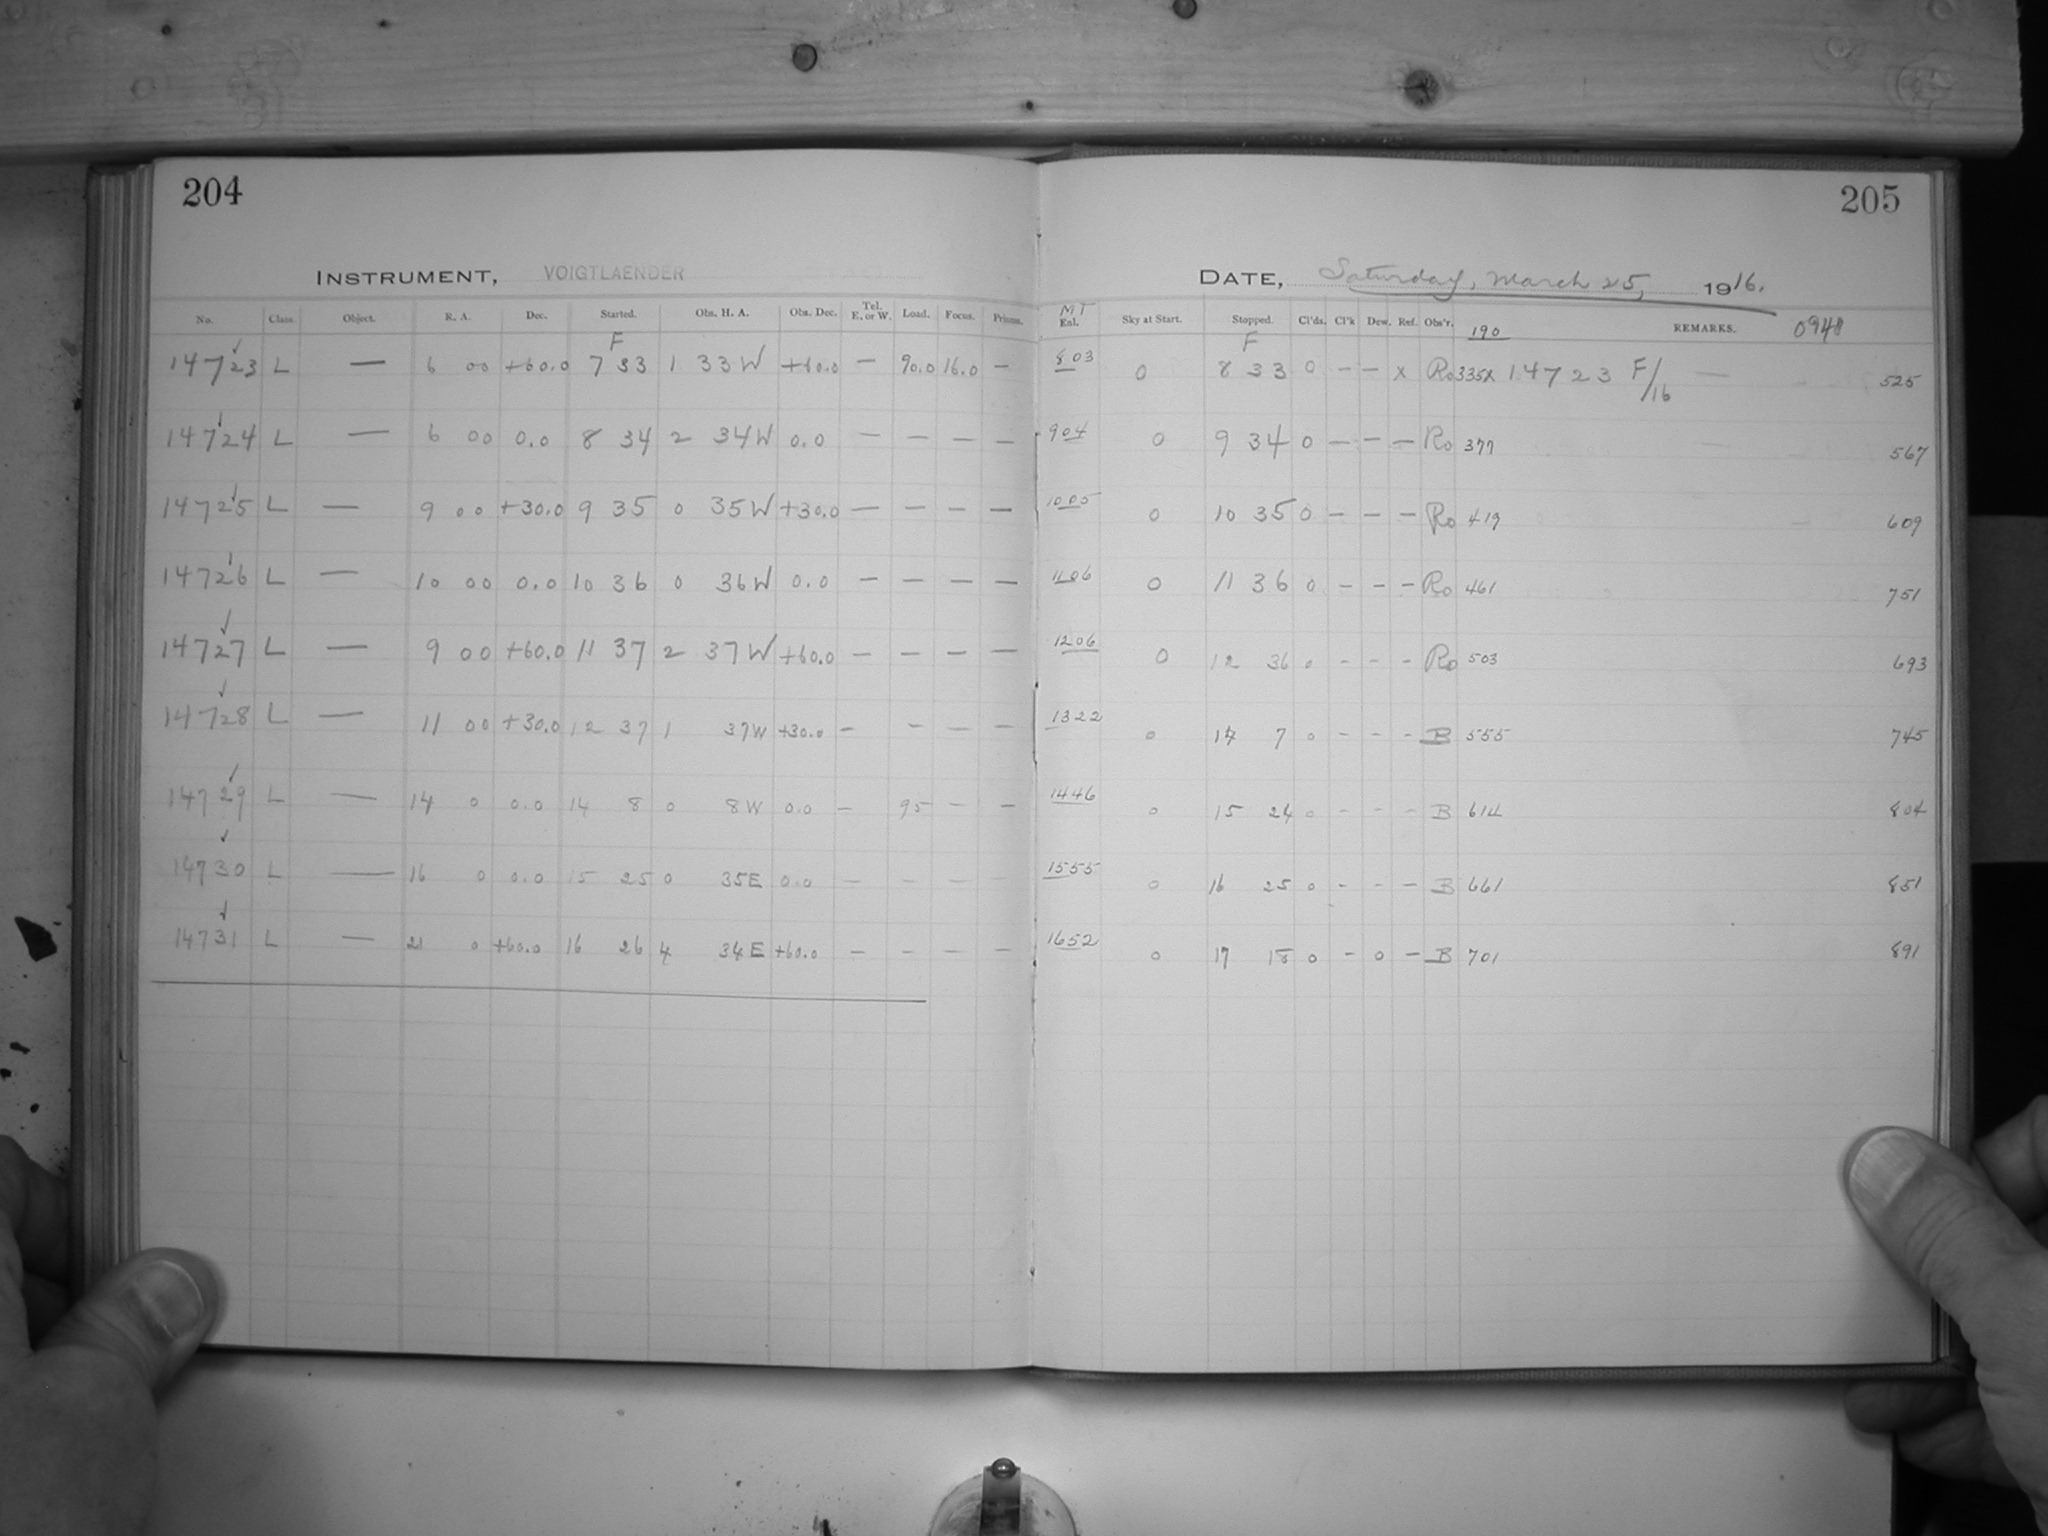 204
205
INSTRUMENT, VOIGTLAENDER
DATE, Saturday, March 25, 1916.
No. Class. Object. R. A. Dec. Started. Obs. H. A. Obs. Dec. Tel. E. or W. Load. Focus. Prisms. MT Enl. Sky at Start. Stopped. Cl'ds. Cl'k Dew. Ref. Obs'r. 190 REMARKS. 0948
F F
14723 L — 6 00 +60.0 7 33 1 33W +60.0 — 90.0 16.0 — 803 0 8 33 0 - - x Ro 335x 14723 F/16 — 525
14724 L — 6 00 0.0 8 34 2 34W 0.0 — — — — 904 0 9 34 0 — — — Ro 377 567
14725 L — 9 00 +30.0 9 35 0 35W +30.0 — — — — 1005 0 10 35 0 — — — Ro 419 609
14726 L — 10 00 0.0 10 36 0 36W 0.0 — — — — 1106 0 11 36 0 - - - Ro 461 751
14727 L — 9 00 +60.0 11 37 2 37W +60.0 — — — — 1206 0 12 36 0 - - - Ro 503 693
14728 L — 11 00 +30.0 12 37 1 37W +30.0 — - — — 1322 0 14 7 0 - - - B 555 745
14729 L — 14 0 0.0 14 8 0 8W 0.0 — 95 — — 1446 0 15 24 0 - - - B 614 804
14730 L — 16 0 0.0 15 25 0 35E 0.0 — — — — 1555 0 16 25 0 - - — B 661 851
14731 L — 21 0 +60.0 16 26 4 34E +60.0 — — — — 1652 0 17 18 0 - 0 — B 701 891